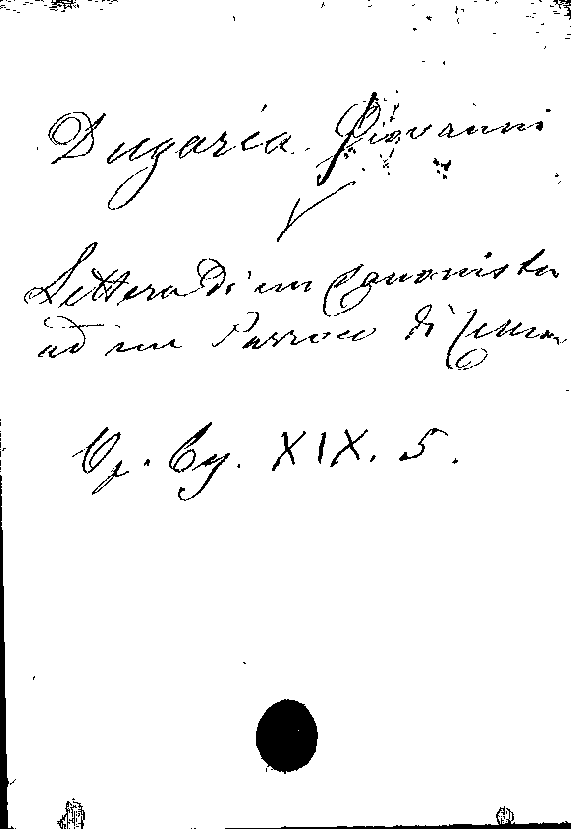 Dugaria Giovanni
Lettera di un Canonista
ad un Parroco di
Op. Cy. XIX. 5.